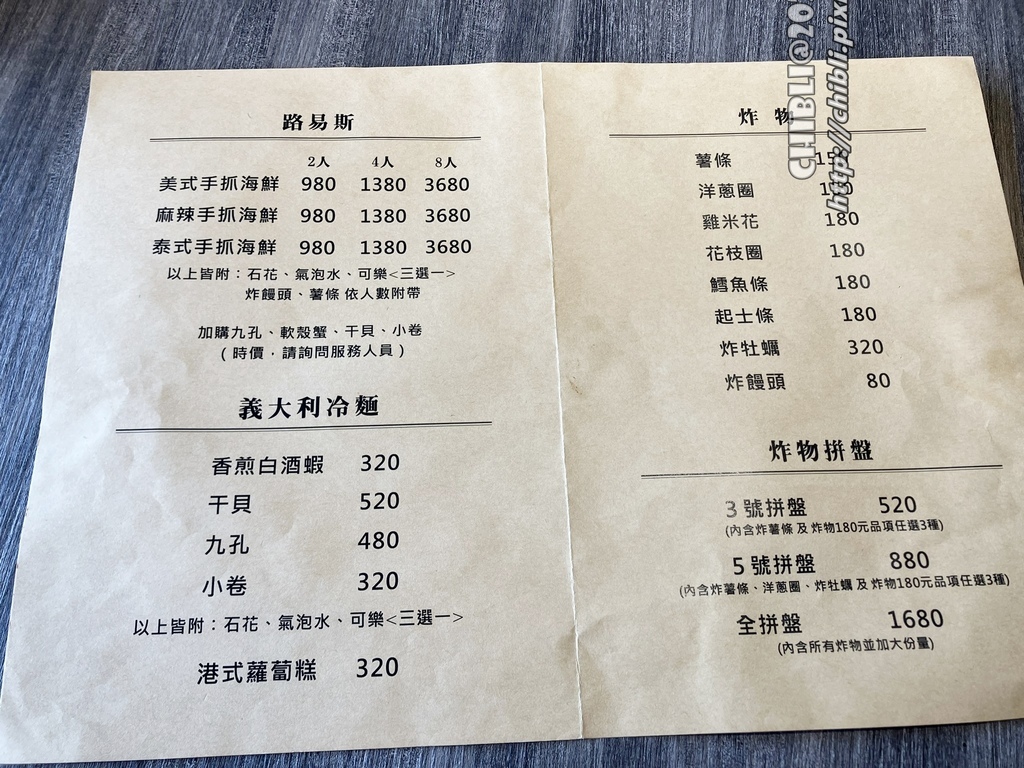 路易斯
2人 4人 8人
美式手抓海鮮 980 1380 3680
麻辣手抓海鮮 980 1380 3680
泰式手抓海鮮 980 1380 3680
以上皆附：石花、氣泡水、可樂<三選一>
炸饅頭、薯條 依人數附帶
加購九孔、軟殼蟹、干貝、小卷
(時價，請詢問服務人員)
義大利冷麵
香煎白酒蝦 320
干貝 520
九孔 480
小卷 320
以上皆附：石花、氣泡水、可樂<三選一>
港式蘿蔔糕 320
炸物
薯條
洋蔥圈
雞米花 180
花枝圈 180
鱈魚條 180
起士條 180
炸牡蠣 320
炸饅頭 80
炸物拼盤
3號拼盤 520
(內含炸薯條 及 炸物180元品項任選3種)
5號拼盤 880
(內含炸薯條、洋蔥圈、炸牡蠣 及 炸物180元品項任選3種)
全拼盤 1680
(內含所有炸物並加大份量)
CHIBLI@20
http://chibli.pix